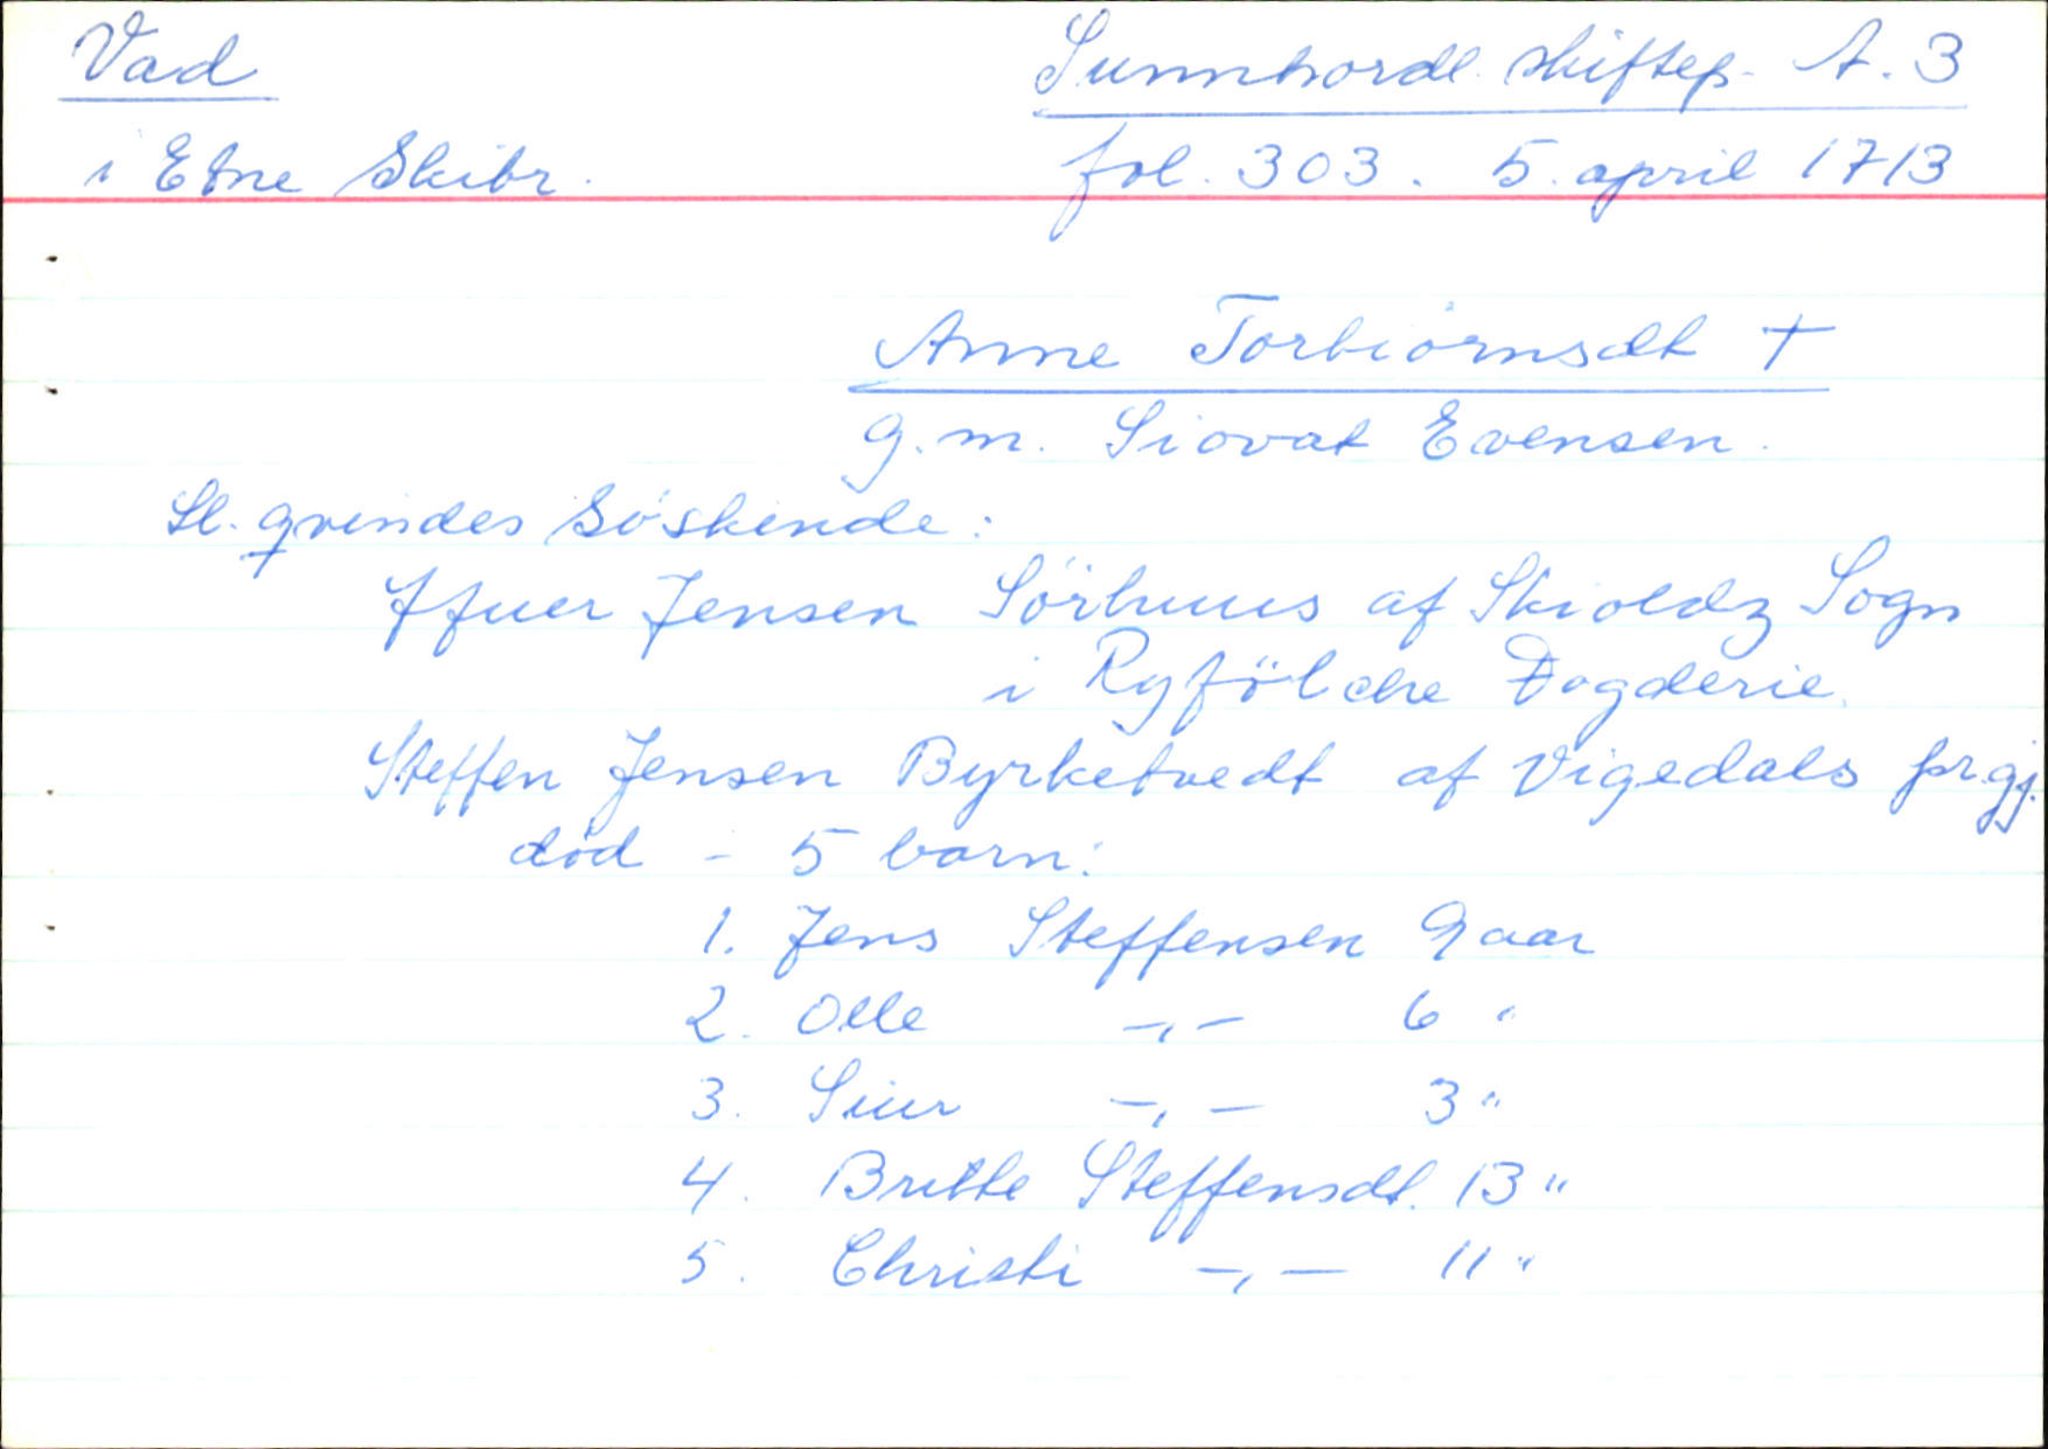 Vad
Sunnhordl. skiftep. A. 3
i Etne Skibr.
fol. 303. 5. april 1713
Anne Torbiörnsdt †
g. m. Siovat Evensen.
Sl. qvindes Söskende:
Ifuer Jensen Sörhuus af Skioldz Sogn
i Ryfölche Fogderie.
Steffen Jensen Byrketvedt af Vigedals pr.gj.
död - 5 barn:
1. Jens Steffensen 9 aar
2. Olle -„- 6 "
3. Siur -„- 3 "
4. Britte Steffensdt. 13 "
5. Christi -„- 11 "